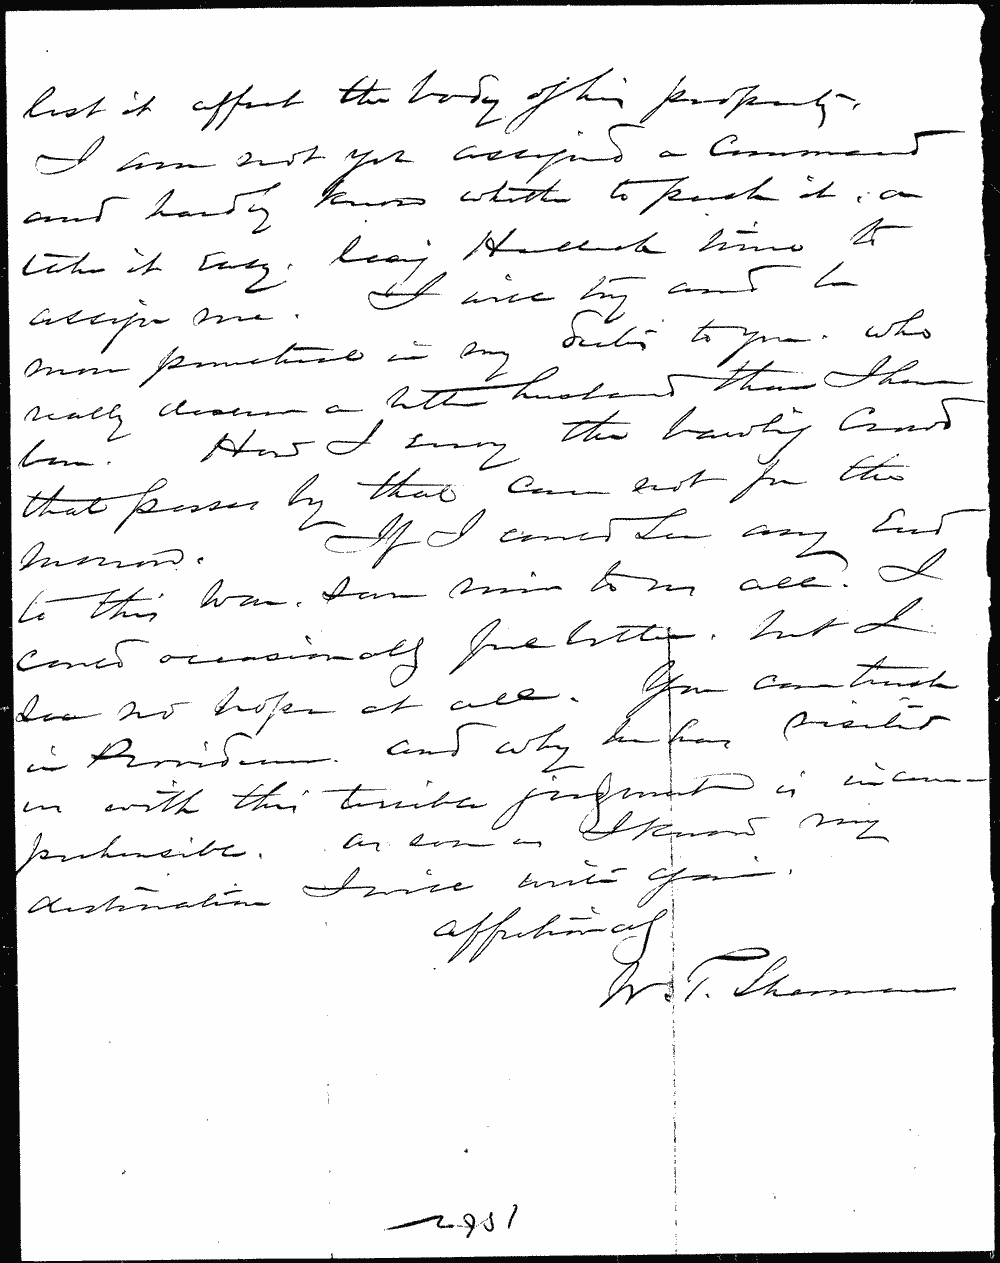 lest it affect the body of his property.
I am not yet assigned a Command
and hardly know whether to push it, or
take it easy, leaving Halleck time to
assign me. I will try and be
more punctual in my letters to you. who
really deserve a better husband than I have
been. How I envy the bawling Crowd
that passes by that care not for the
morrow. If I could See any End
to this War. I
could occasionally feel better, but I
See no hope at all. You can trust
in Providence. and why he has visited
us with this terrible judgment is incom-
prehensible. As soon as I know my
destination I will write again.
affectionately
W. T. Sherman
2951